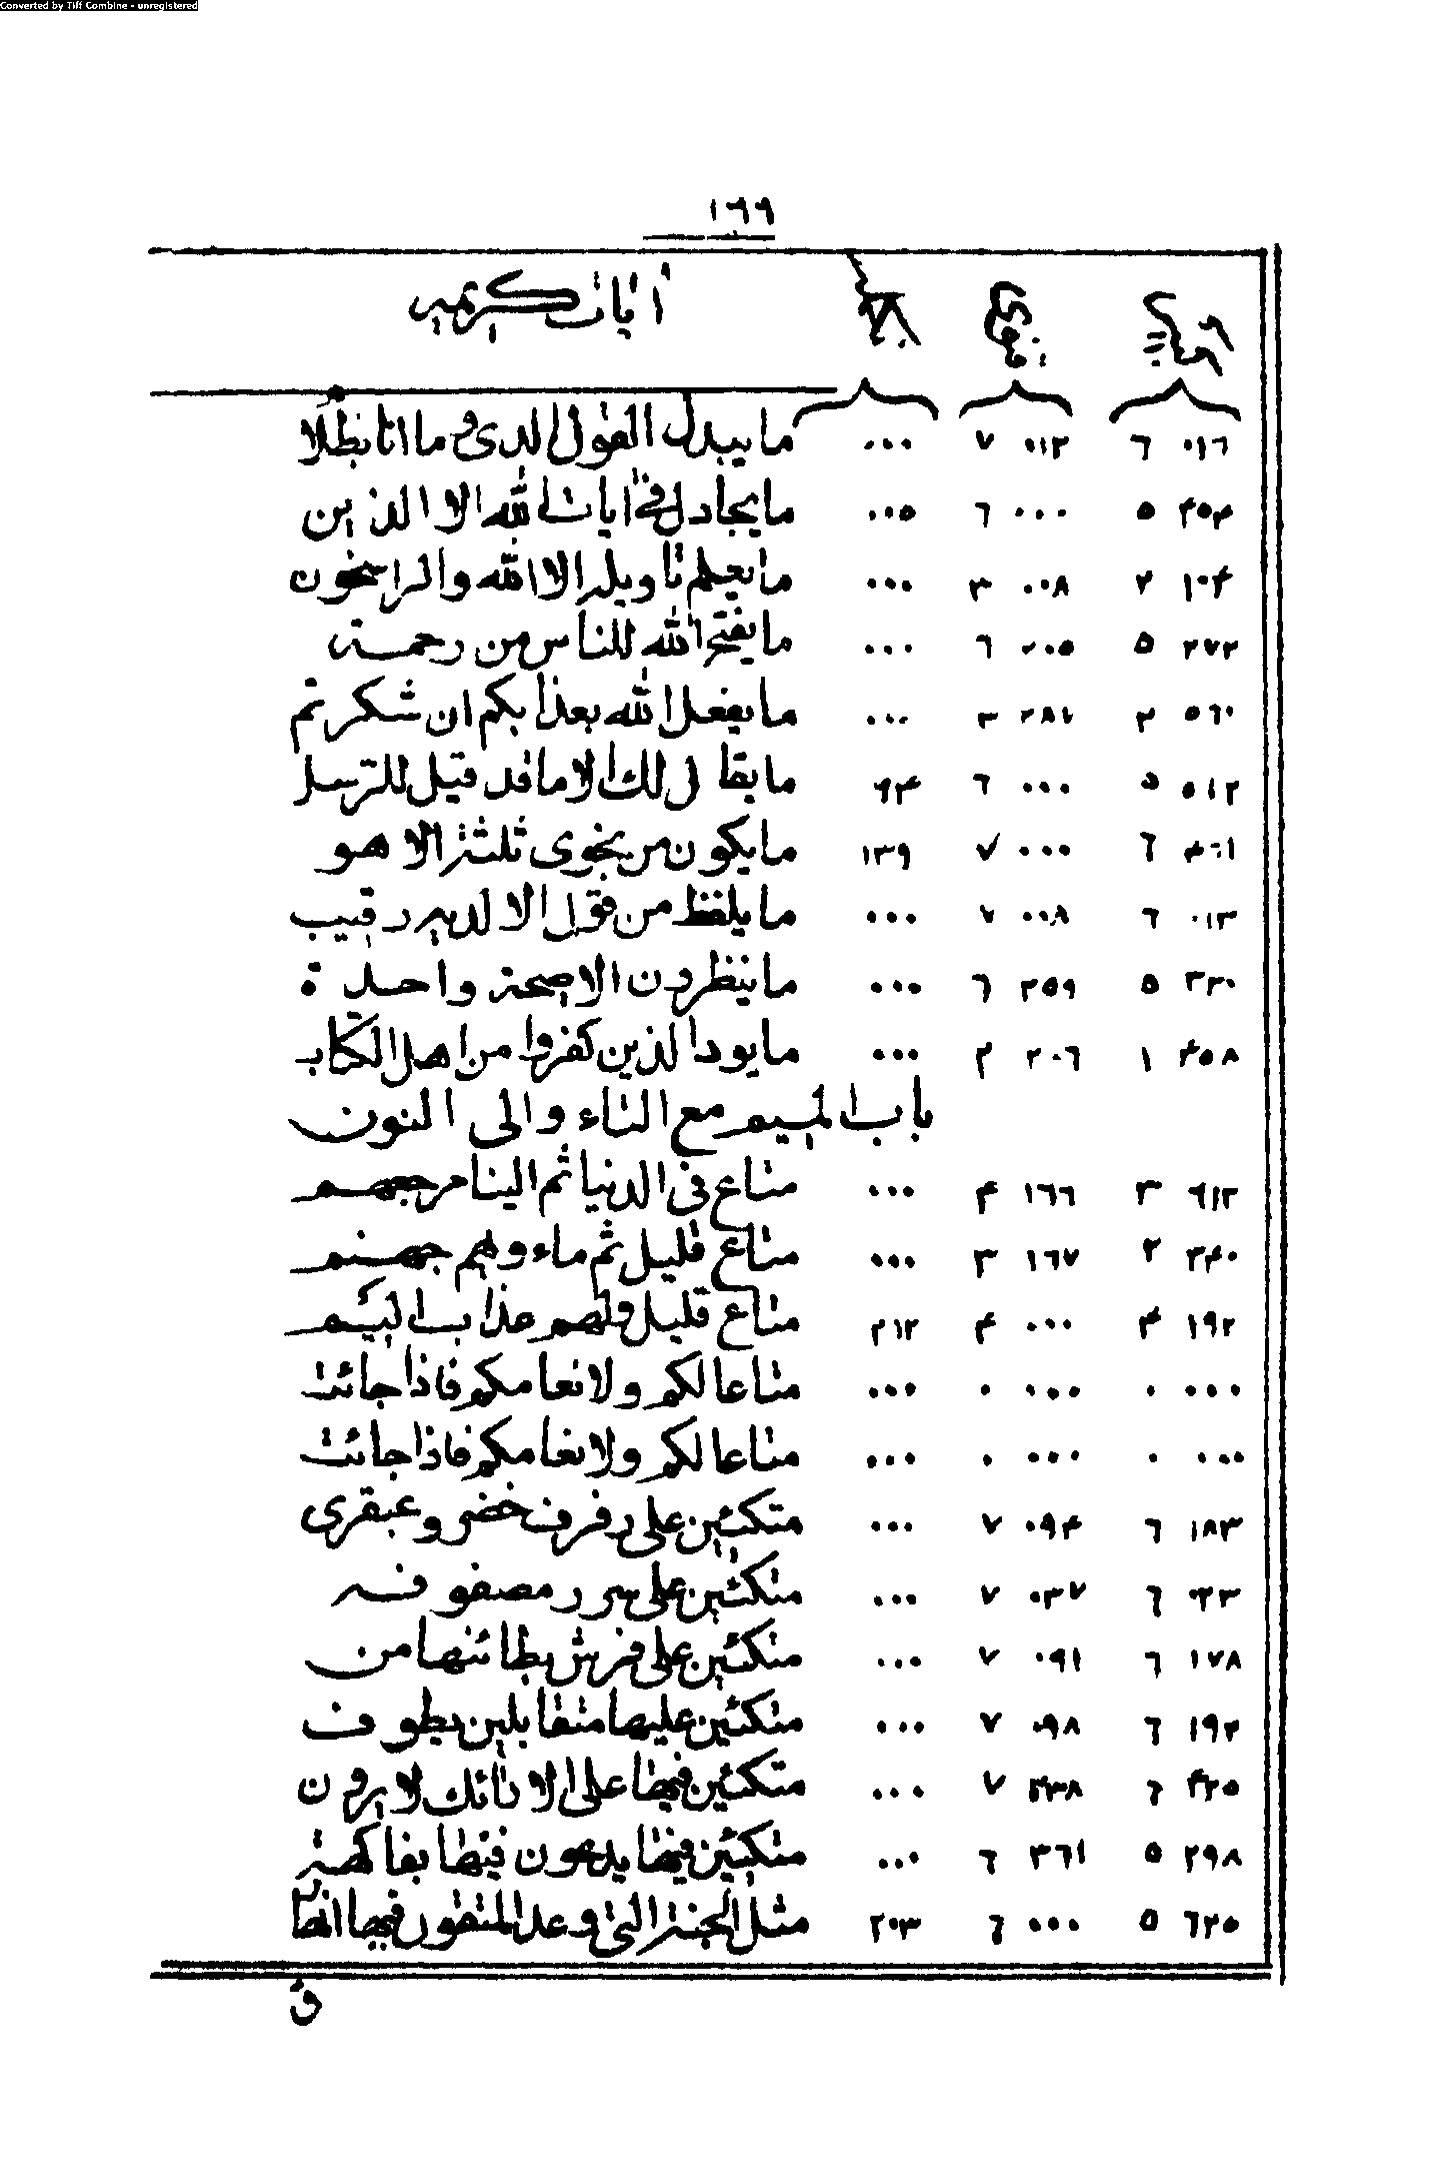 Converted by Tiff Combine - unregistered
١٦٦
آيات كريمه
٠١٦ ٦ ٠١٣ ٧ ٠٠٠ ما يبدل القول لدى وما انا بظلا
٤٥٣ ٥ ٠٠٠ ٦ ٠٠٥ ما يجادل فى آيات الله الا الذين
١٠٤ ٢ ٠٠٨ ٣ ٠٠٠ ما يعلم تاويله الا الله والراسخون
٢٧٢ ٥ ٢٠٥ ٦ ٠٠٠ ما يفتح الله للناس من رحمة
٥٦٠ ٢ ٢٨٢ ٣ ٠٠٠ ما يفعل الله بعذابكم ان شكرتم
٥١٢ ٥ ٠٠٠ ٦ ٩٤ ما يقال لك الا ما قد قيل للرسل
٤٦١ ٦ ٠٠٠ ٧ ١٣٩ ما يكون من نجوى ثلثة الا هو
٠١٣ ٦ ٠٠٨ ٧ ٠٠٠ ما يلفظ من قول الا لديه رقيب
٣٣٠ ٥ ٢٥٩ ٦ ٠٠٠ ما ينظرون الا صيحة واحدة
٤٥٨ ١ ٢٠٦ ٢ ٠٠٠ ما يود الذين كفروا من اهل الكتاب
باب الميم مع التاء والى النون
٦١٢ ٣ ١٦٦ ٤ ٠٠٠ متاع فى الدنيا ثم الينا مرجعهم
٣٤٠ ٢ ١٦٧ ٣ ٠٠٠ متاع قليل ثم ماءويهم جهنم
١٩٢ ٤ ٠٠٠ ٤ ٢١٢ متاع قليل ولهم عذاب اليم
٠٠٠ ٠ ٠٠٠ ٠ ٠٠٠ متاعا لكم ولانعامكم فاذا جائت
٠٠٠ ٠ ٠٠٠ ٠ ٠٠٠ متاعا لكم ولانعامكم فاذا جائت
١٨٣ ٦ ٠٩٤ ٧ ٠٠٠ متكئين على رفرف خضر وعبقرى
٠٢٣ ٦ ٠٣٧ ٧ ٠٠٠ متكئين على سرر مصفوفه
١٧٨ ٦ ٠٩١ ٧ ٠٠٠ متكئين على فرش بطائنها من
١٩٢ ٦ ٠٩٨ ٧ ٠٠٠ متكئين عليها متقابلين يطوف
٤٢٥ ٦ ٤٣٨ ٧ ٠٠٠ متكئين فيها على الارائك لا يرون
٢٩٨ ٥ ٣٦١ ٦ ٠٠٠ متكئين فيها يدعون فيها بفاكهة
٦٢٥ ٥ ٠٠٠ ٦ ٢٠٣ مثل الجنة التى وعد المتقون فيها انهار